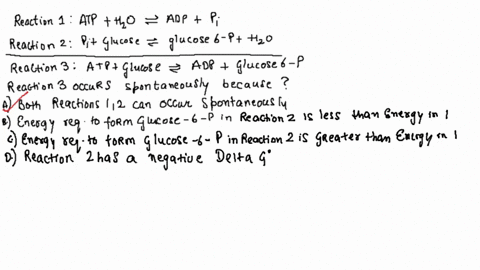 Reaction 1: ATP + H₂O ⇌ ADP + Pi
Reaction 2: Pi + Glucose ⇌ glucose 6-P + H₂O
Reaction 3: ATP + Glucose ⇌ ADP + Glucose 6-P
Reaction 3 occurs spontaneously because ?
A) Both Reactions 1,2 can occur spontaneously
B) Energy req. to form Glucose-6-P in Reaction 2 is less than Energy in 1
C) Energy req. to form Glucose-6-P in Reaction 2 is Greater than Energy in 1
D) Reaction 2 has a negative Delta G°